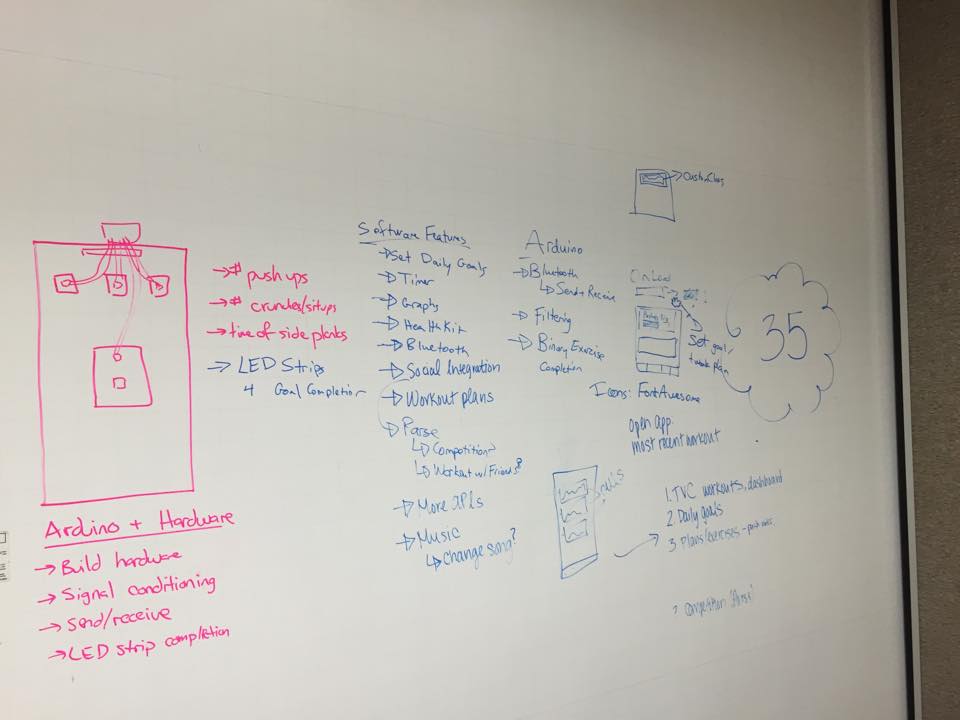 → # push ups
→ # crunches/situps
→ time of side planks
→ LED Strips
4 Goal Completion
Arduino + Hardware
→ Build hardware
→ Signal conditioning
→ Send/receive
→ LED strip completion
Software Features
→ Set Daily Goals
→ Timer
→ Graphs
→ HealthKit
→ Bluetooth
→ Social Integration
→ Workout plans
→ Parse
↳ Competition
↳ Workout w/ Friends?
→ More APIs
→ Music
↳ Change song?
Arduino
→ Bluetooth
↳ Send + Receive
→ Filtering
→ Binary Exercise
Completion
On Load
Set goal,
35
Icons: FontAwesome
open app:
most recent workout
1. TVC workouts, dashboard
2. Daily goals
3. Plans/exercises -
competition